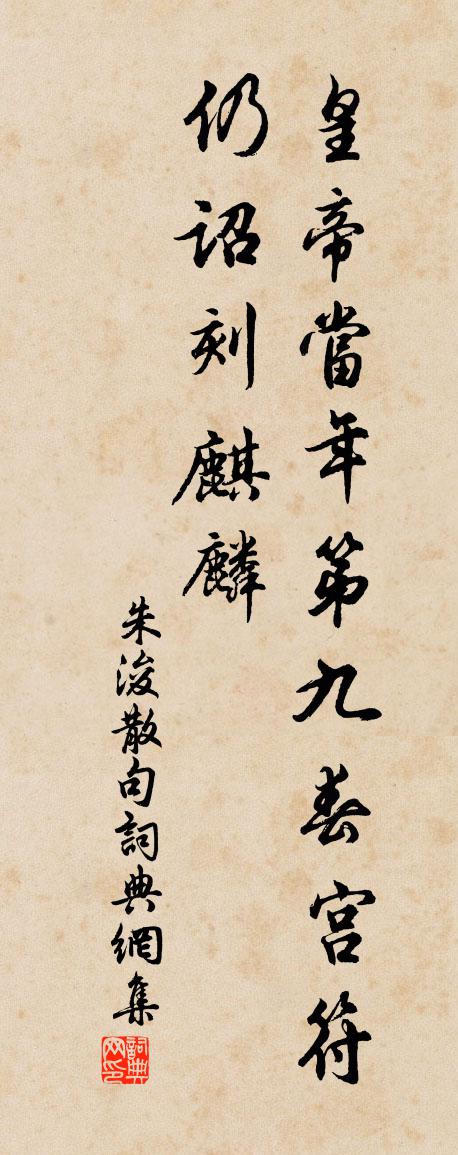 皇帝當年第九春宫符
仍詔刻麒麟
朱浚散句詞典網集
詞典网印